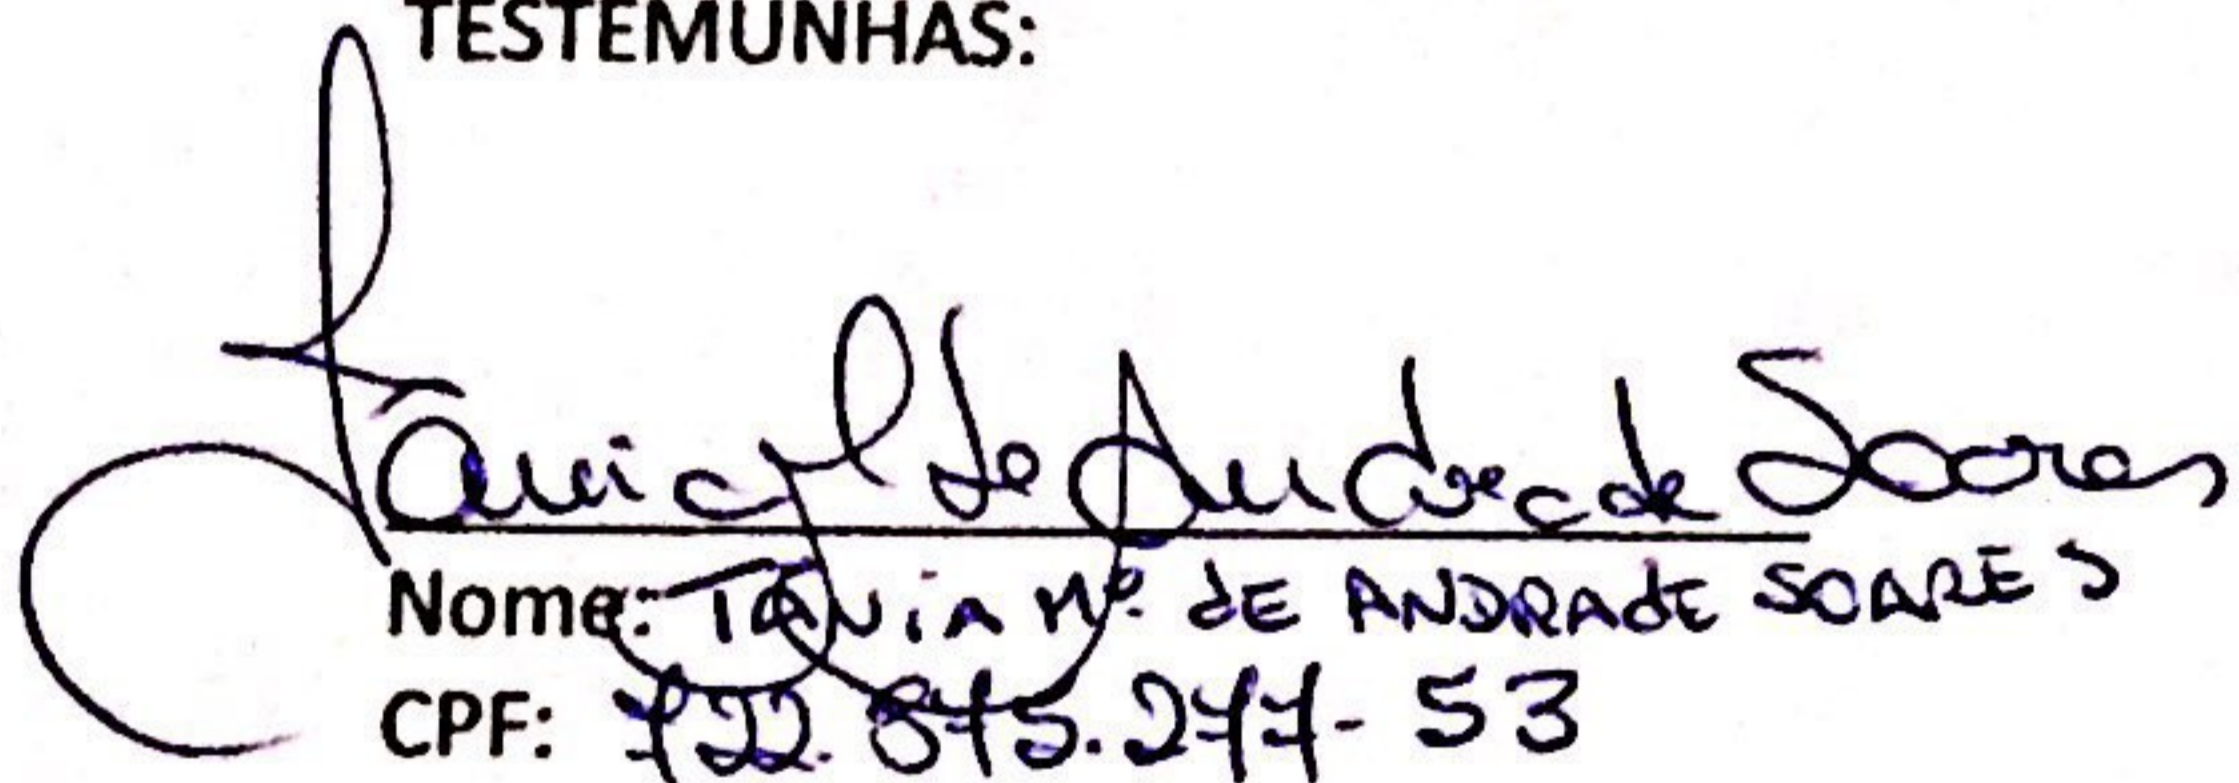 TESTEMUNHAS:
Tania Mª de Andrade Soares
Nome: TANIA Mª. dE ANDRADE SOARES
CPF: 722.875.277-53